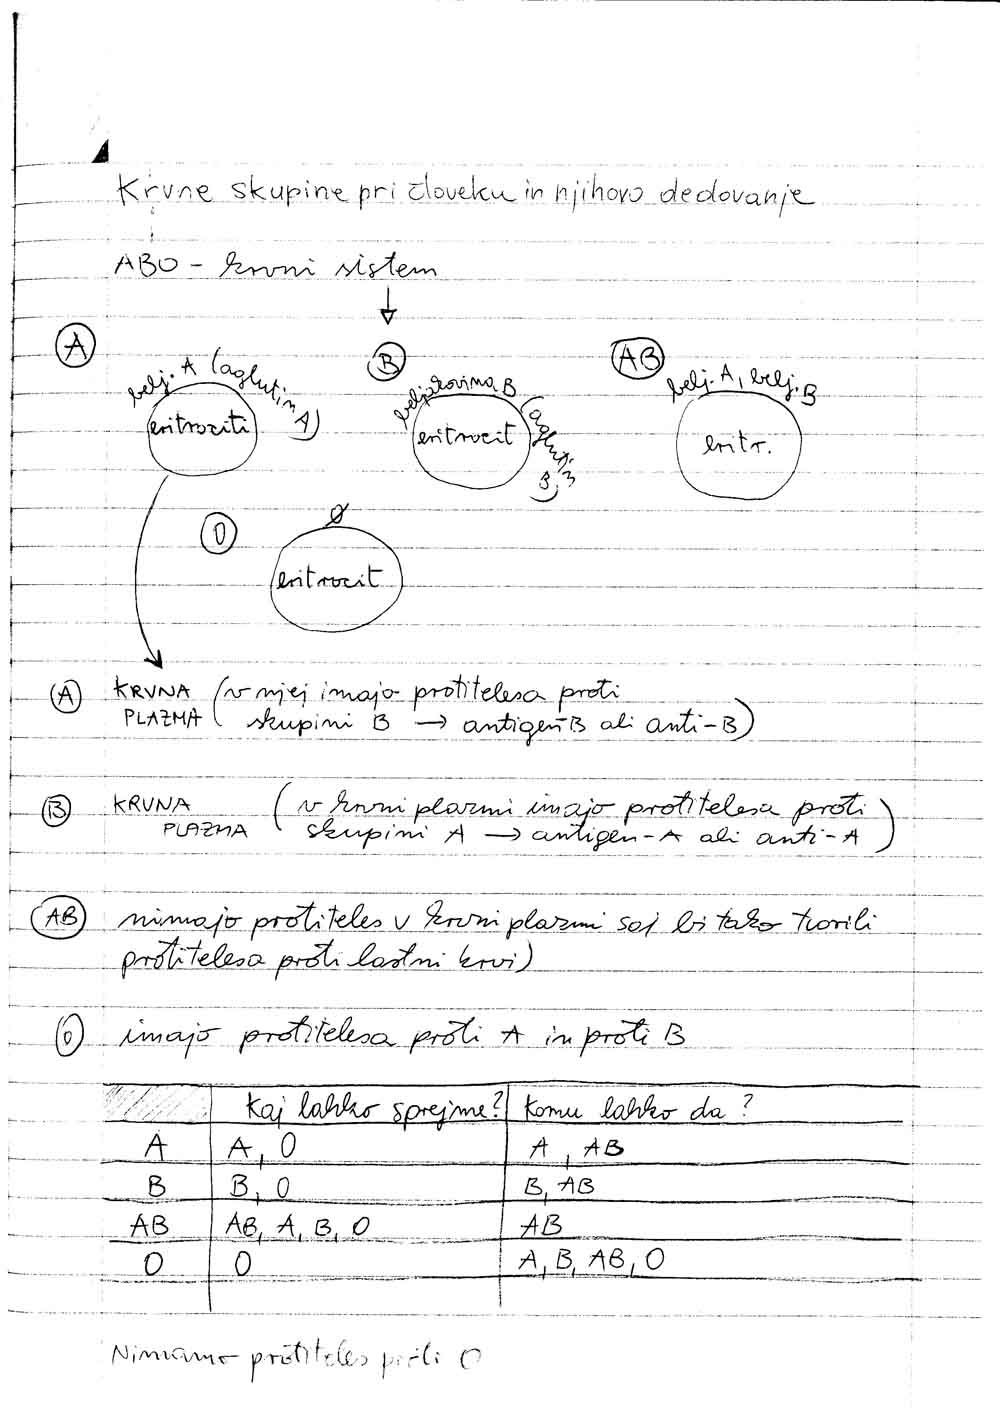 Krvne skupine pri človeku in njihovo dedovanje
ABO - krvni sistem
A
belj. A (aglutin A)
eritrociti
B
beljakovina B (aglutin B)
eritrocit
AB
belj. A, belj. B
eritr.
0
Ø
eritrocit
A KRVNA (v njej imajo protitelesa proti
PLAZMA skupini B → antigen-B ali anti-B)
B KRVNA (v krvni plazmi imajo protitelesa proti
PLAZMA skupini A → antigen-A ali anti-A)
AB nimajo protiteles v krvni plazmi saj bi tako tvorili
protitelesa proti lastni krvi)
0 imajo protitelesa proti A in proti B
Kaj lahko sprejme? Komu lahko da?
A A, 0 A, AB
B B, 0 B, AB
AB AB, A, B, 0 AB
0 0 A, B, AB, 0
Nimamo protiteles proti 0